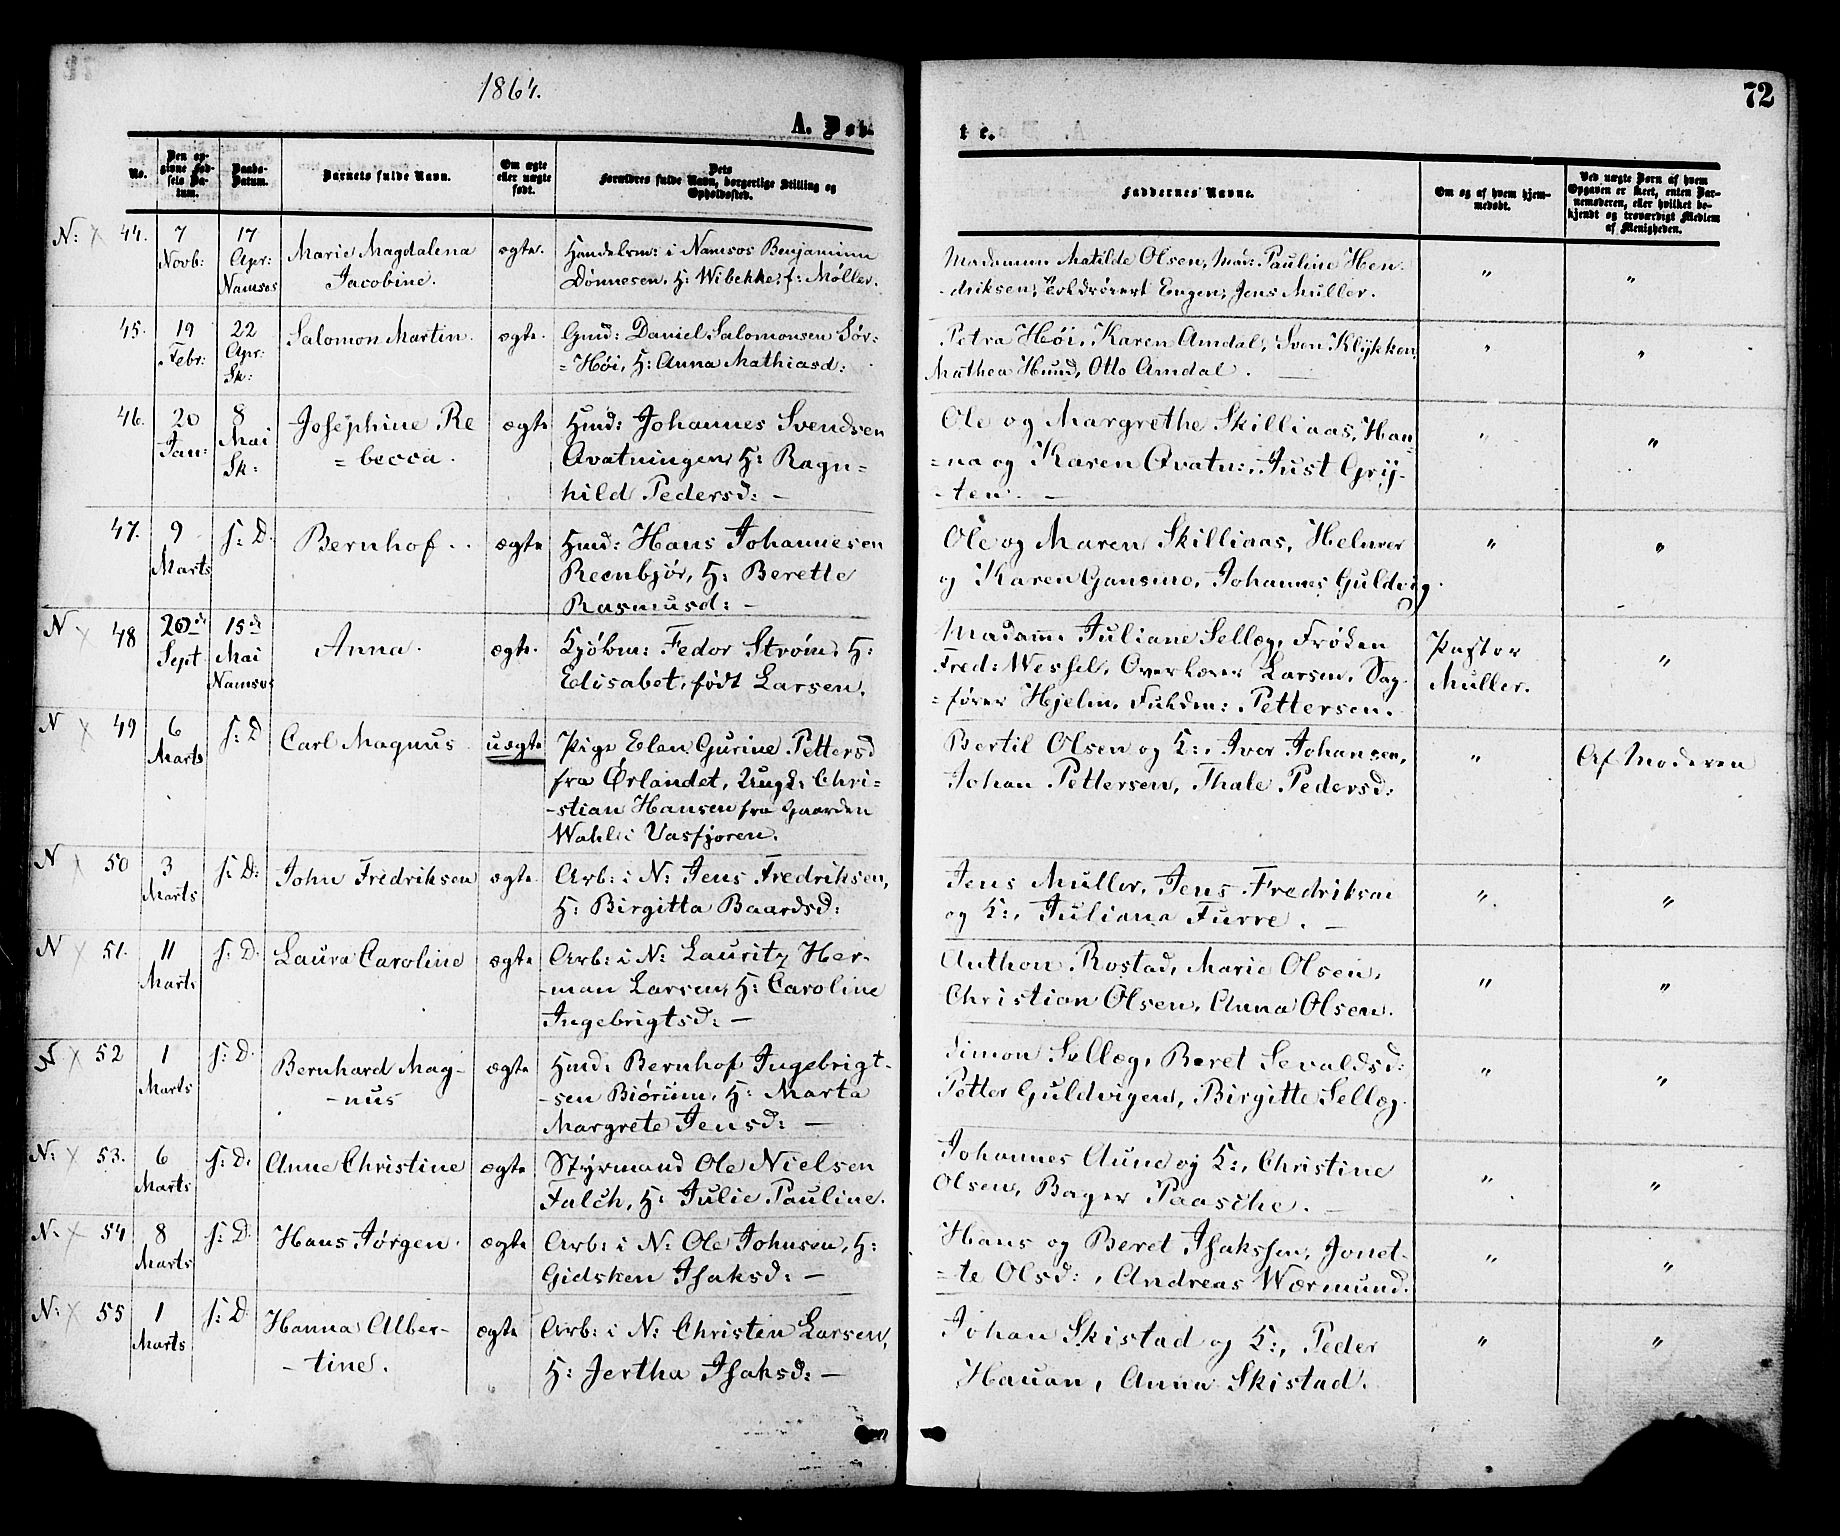 1864.
72
A. Døb-
te.
No.
Den op-
givne Fød-
sels Da-
tum.
Daabs-
Datum.
Barnets fulde Navn.
Om ægte
eller uægte
født.
Dets
Forældres fulde Navn, borgerlige Stilling og
Opholdssted.
Faddernes Navne.
Om og af hvem hjem-
medøbt.
Ved uægte Børn af hvem
Opgaven er skeet, enten Bar-
nemoderen, eller hvilket be-
kjendt og troværdigt Medlem
af Menigheden.
N: x 44. 7 Novb: 17 Apr: Namsos Marie Magdalena Jacobine. ægte. Handelsm: i Namsos Benjaminn
Dønnesen, H: Wibekke, f: Møller.
Madamm Matilde Olsen, Mad: Pauline Hen-
driksen, Engen, Jens Müller. " "
45. 19 Febr: 22 Apr: Sk: Salomon Martin. ægte. Gmd: Daniel Salomonsen Sør-
=Høi, H: Anna Mathiasd:
Petra Høi, Karen Amdal, Sven Klykken,
Mathea Hund, Otto Amdal. " "
46. 20 Jan: 8 Mai Sk: Josephine Re
=becca. ægte Hmd: Johannes Svendsen
Avatningen, H: Ragn=
hild Pedersd: —
Ole og Margrethe Skilliaas, Han-
=na og Karen Avatn:, Just Gryj-
-ten. — " "
47. 9 Marts s: D. Bernhof. ægte Hmd: Hans Johannesen
Reenbjør, H: Berette
Rasmusd: —
Ole og Maren Skilliaas, Helmer
og Karen Gansmo, Johannes Guldvig. " "
N x 48 20de Sept 15de Mai Namsos Anna. ægte. Kjøbm: Fedor Strøm, H:
Elisabet, født Larsen.
Madam. Juliane Selleg, Frøken
Fred: Wessel, Overlærer Larsen, Sag-
=fører Hjelm, Fuldm: Pettersen. Pastor
Müller. "
N x 49 6 Marts s: D Carl Magnus uægte Pige Elen Gurine Pettersd
fra Ørlandet, Ungk. Chri=
-stian Hansen fra Gaarden
Wahl i Vasfjoren.
Bertil Olsen og K:, Iver Johansen,
Johan Pettersen, Thale Pedersd: " Af Moderen
N x 50 3 Marts s: D: John Fredriksen ægte. Arb: i N: Jens Fredriksen,
H: Birgitta Baardsd:
Jens Müller, Jens Fredriksen
og K:, Juliana Furre. — " "
N x 51. 11 Marts s: D. Laura Caroline ægte Arb: i N: Lauritz Her-
-man Larsen, H: Caroline
Ingebrigtsd: —
Anthon Rostad, Marie Olsen,
Christian Olsen, Anna Olsen. " "
N x 52 1 Marts s: D. Bernhard Mag-
-nus ægte Hmd: Bernhof Ingebrigt-
-sen Biørum, H: Marta
Margrete Jensd: —
Simon Selleg, Beret Sevaldsd:
Petter Guldvigen, Birgitte Selleg. " "
N: x 53. 6 Marts s: D. Anne Christine ægte Styrmand Ole Nielsen
Falch, H: Julie Pauline.
Johannes Aune og K:, Christine
Olsen, Bager Paasche. " "
N: x 54 8 Marts s: D. Hans Jørgen. ægte Arb: i N: Ole Johnsen, H:
Gidsken Isaksd: —
Hans og Beret Isakssen, Jonet-
=te Olsd:, Andreas Wærmund. " "
N: x 55 1 Marts s: D. Hanna Alber-
-tine. ægte Arb: i N: Christen Larsen,
H: Jertha Isaksd: —
Johan Skistad og K:, Peder
Hauan, Anna Skistad. " "